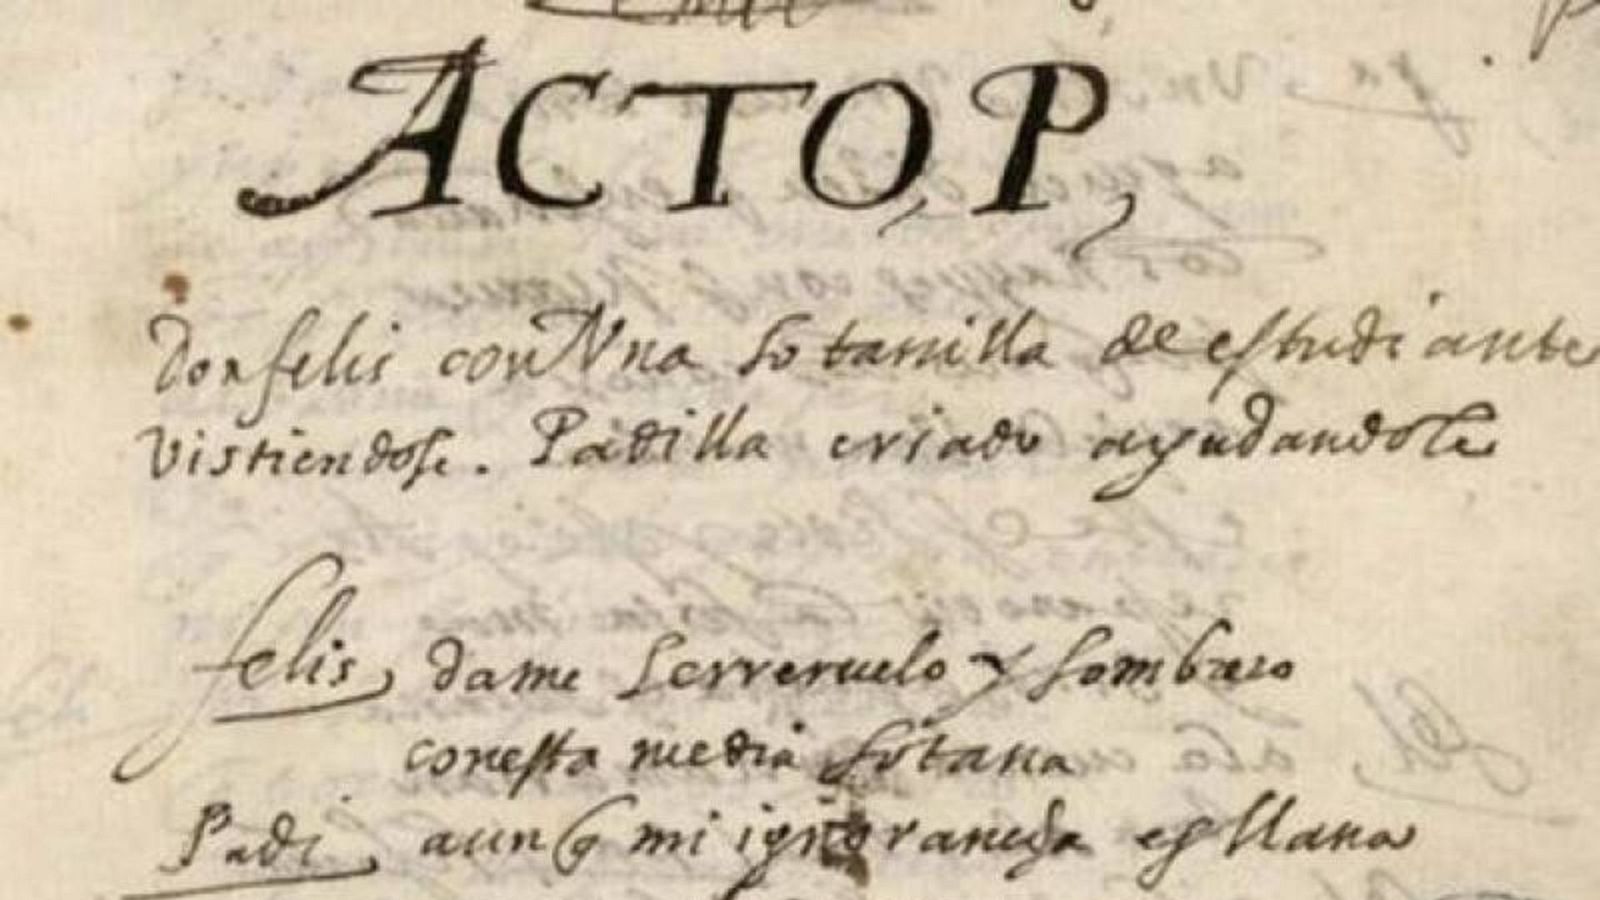 ACTO, P,
Don felis con Vna sotanilla de estudiante
vistiendose. Padilla criado ayudandole
felis, dame ferreruelo y sombrero
con esta media sotana
Padi, aunq mi ignorancia es llana